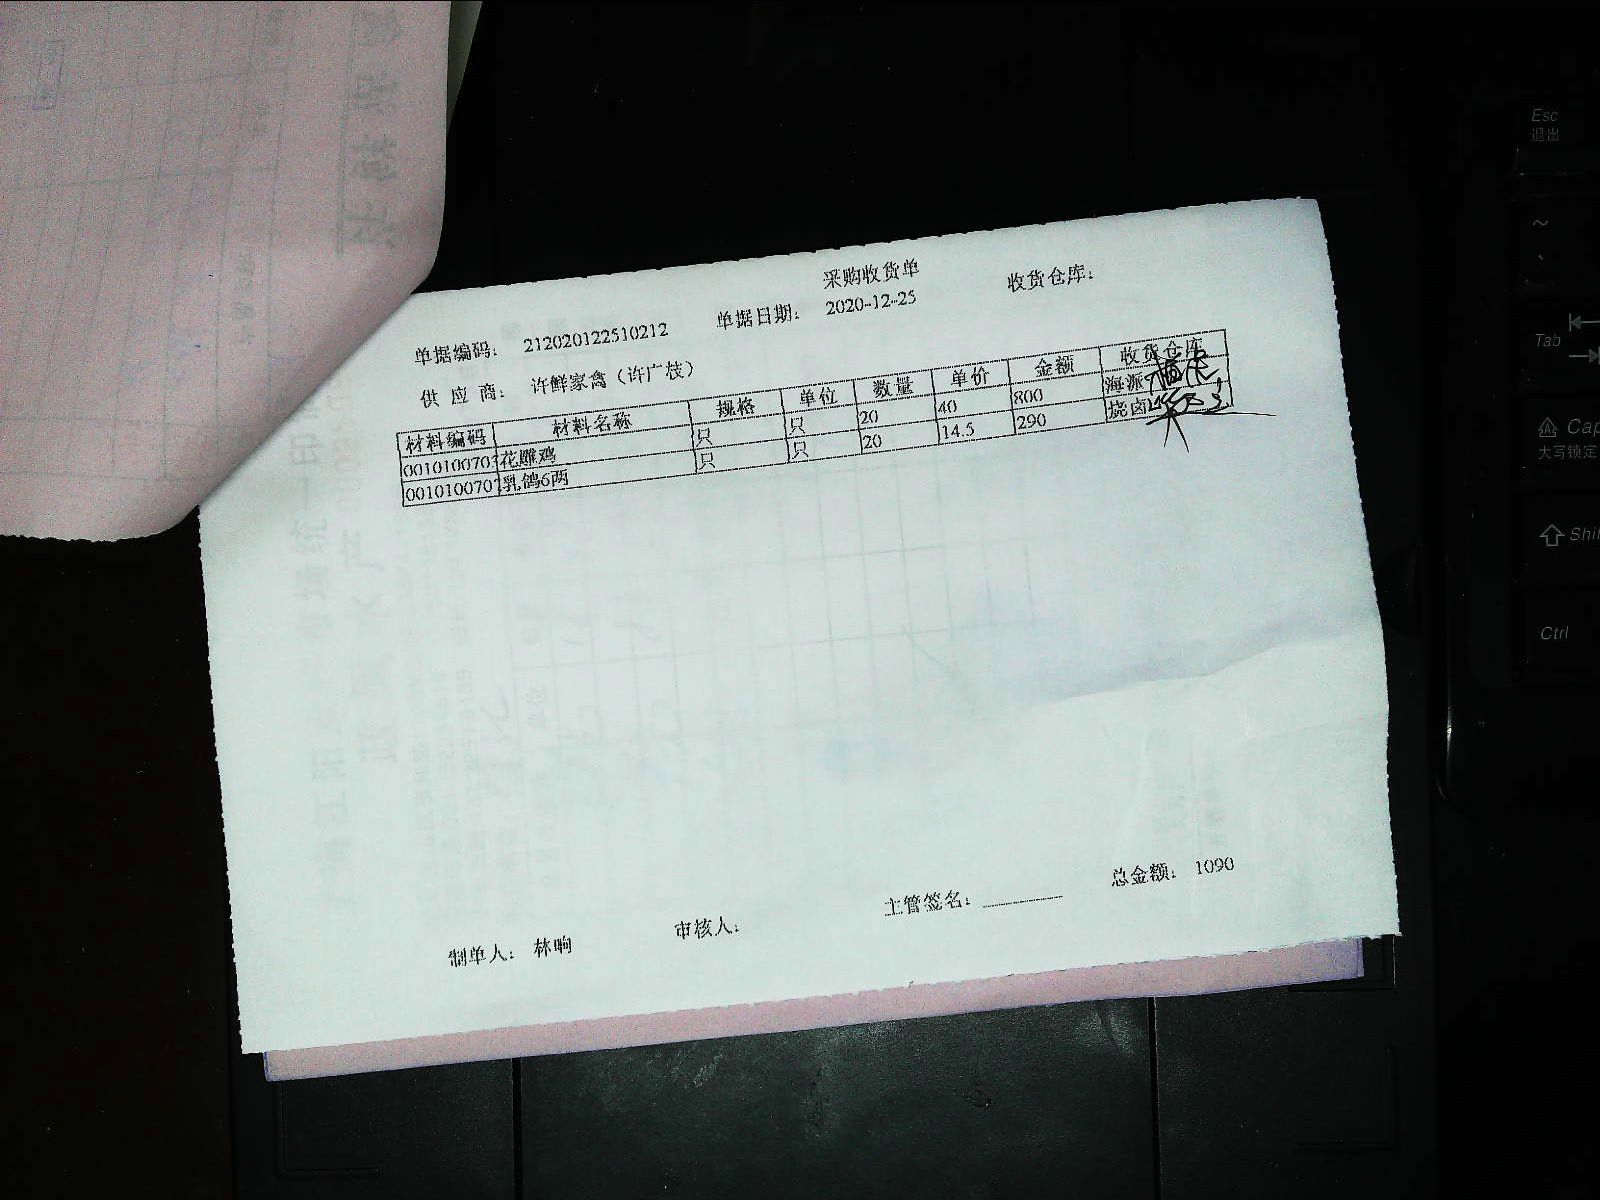 采购收货单
单据编码： 212020122510212 单据日期： 2020-12-25 收货仓库：
供 应 商： 许鲜家禽（许广枝）
材料编码 材料名称 规格 单位 数量 单价 金额 收货仓库
001010070 花雕鸡 只 只 20 40 800 海派
001010070 乳鸽6两 只 只 20 14.5 290 烧卤
总金额： 1090
制单人： 林响 审核人： 主管签名：
Esc
退出
~
Tab
Cap
大写锁定
Shif
Ctrl